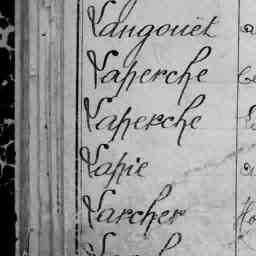 Langouet
Laperche
Laperche
Lapie
Larcher